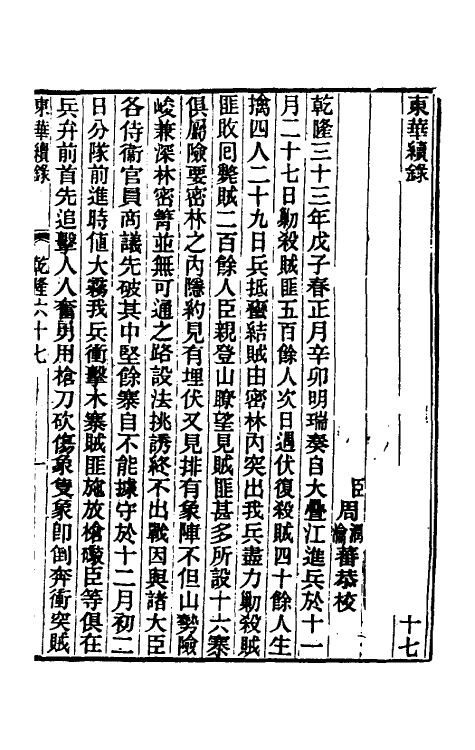 東華續錄　十七
臣周潤蕃恭校
乾隆三十三年戊子春正月辛卯明瑞奏自大疊江進兵於十一
月二十七日勦殺賊匪五百餘人次日遇伏復殺賊四十餘人生
擒四人二十九日兵抵蠻結賊由密林內突出我兵盡力勦殺賊
匪敗囘斃賊二百餘人臣親登山瞭望見賊匪甚多所設十六寨
俱屬險要密林之內隱約見有埋伏又見排有象陣不但山勢險
峻兼深林密箐並無可通之路設法挑誘終不出戰因與諸大臣
各侍衞官員商議先破其中堅餘寨自不能據守於十二月初二
日分隊前進時値大霧我兵衝擊木寨賊匪施放槍礮臣等俱在
兵弁前首先追擊人人奮勇用槍刀砍傷象隻象卽倒奔衝突賊
東華續錄　乾隆六十七　一